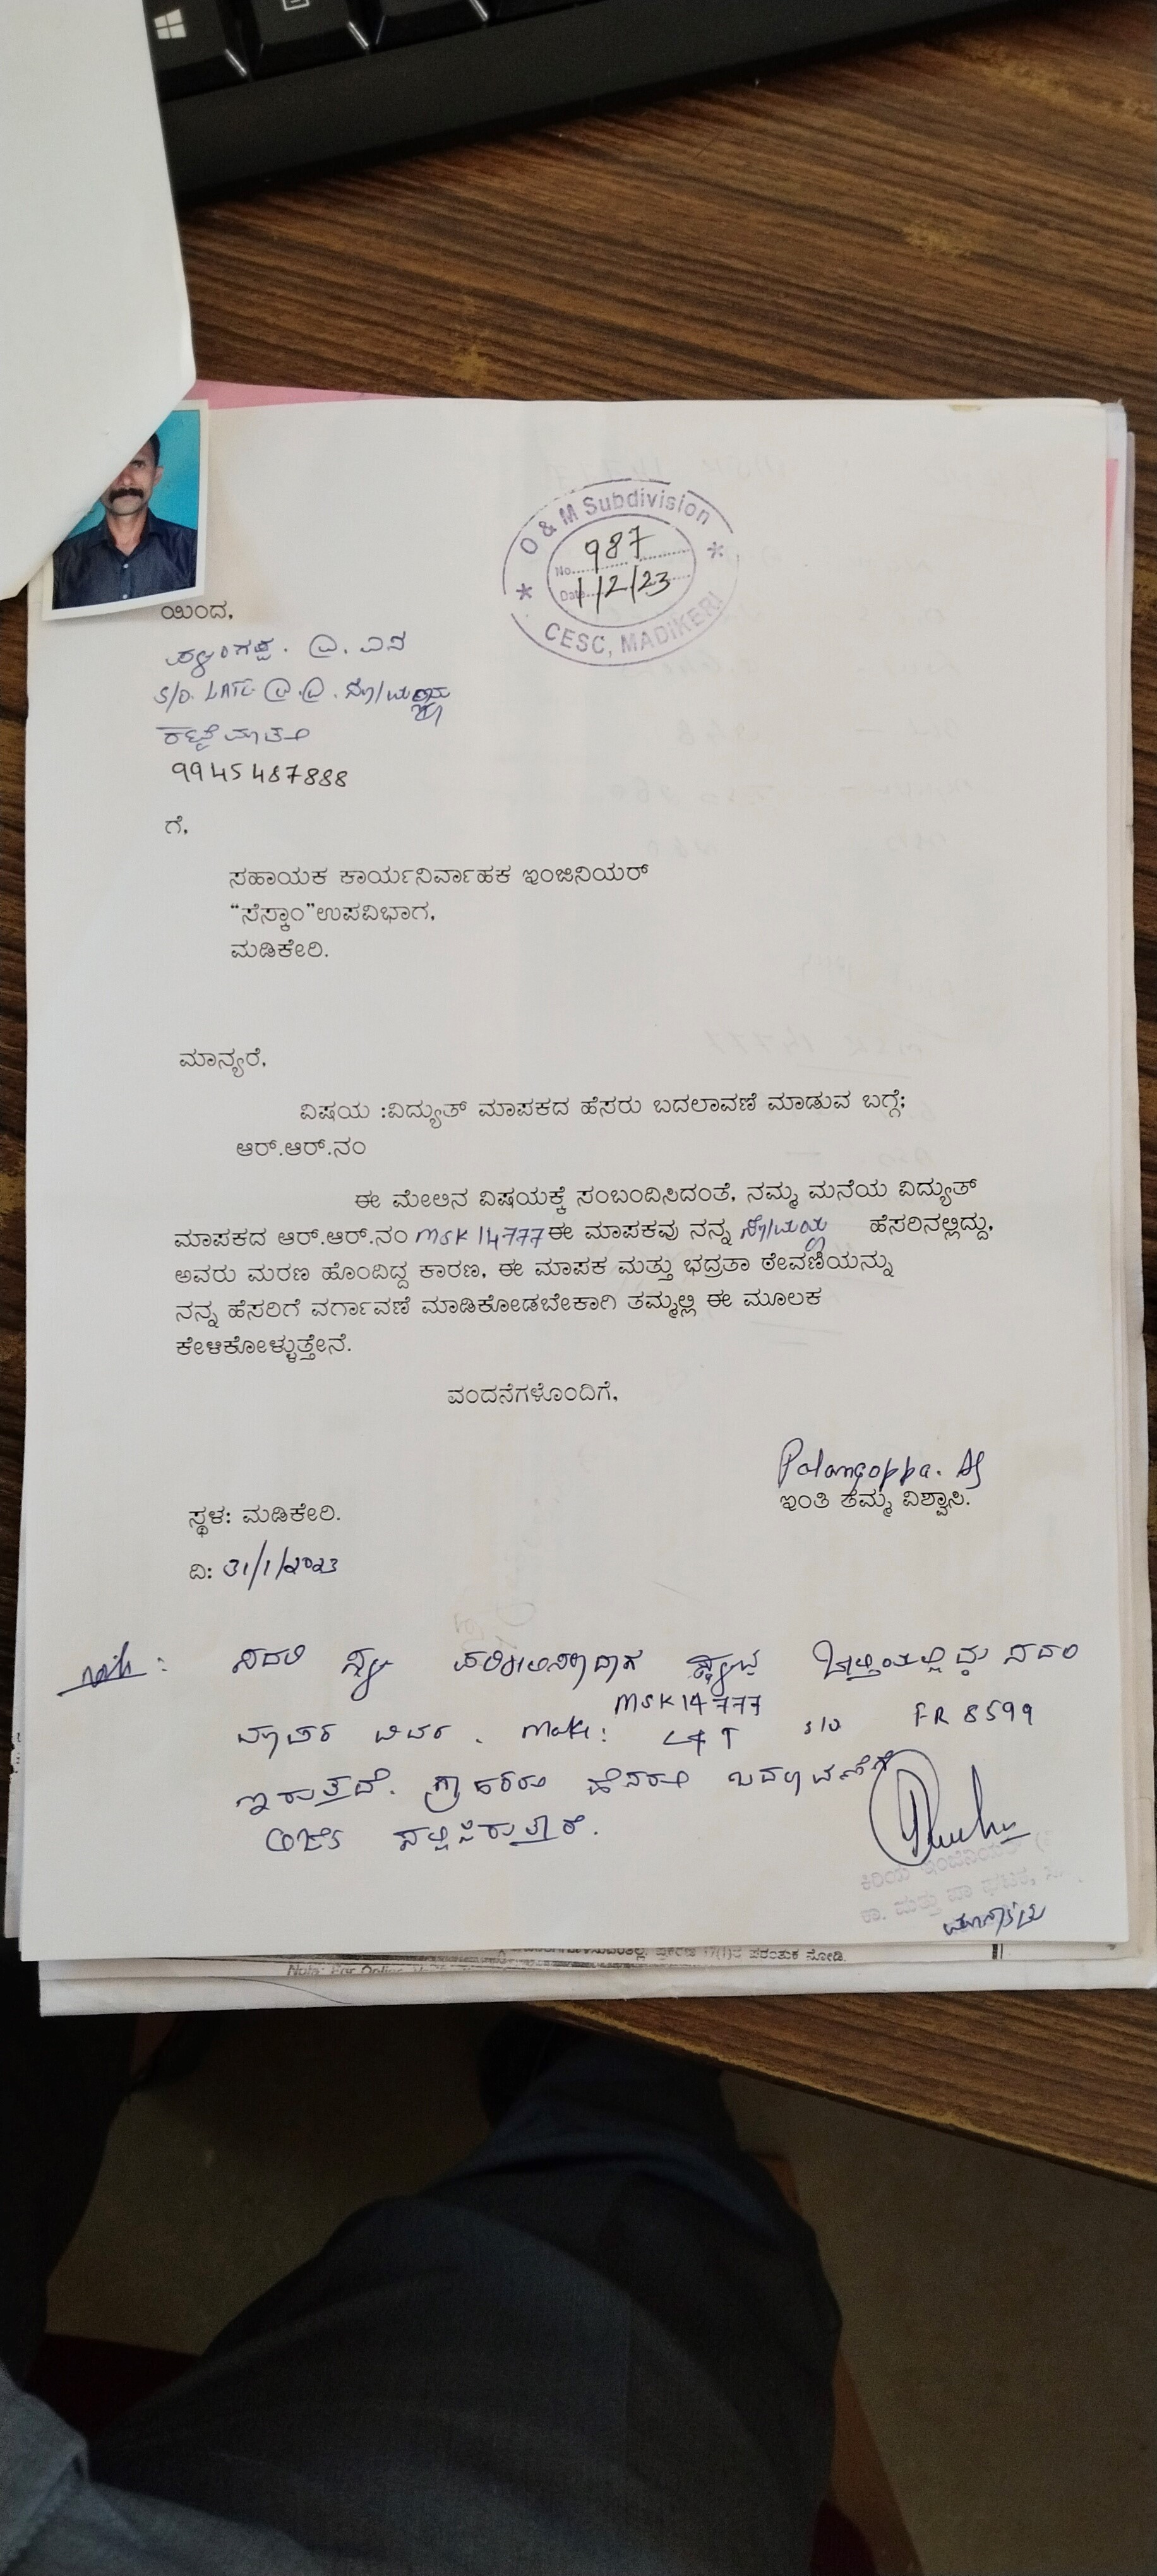 O & M Subdivision
No. 987
Date 1/2/23
CESC, MADIKERI
ಯಿಂದ,
S/O. LATE
9945487888
ಗೆ,
ಸಹಾಯಕ ಕಾರ್ಯನಿರ್ವಾಹಕ ಇಂಜಿನಿಯರ್
“ಸೆಸ್ಕಾಂ”ಉಪವಿಭಾಗ,
ಮಡಿಕೇರಿ.
ಮಾನ್ಯರೆ,
ವಿಷಯ :ವಿದ್ಯುತ್ ಮಾಪಕದ ಹೆಸರು ಬದಲಾವಣೆ ಮಾಡುವ ಬಗ್ಗೆ;
ಆರ್.ಆರ್.ನಂ
ಈ ಮೇಲಿನ ವಿಷಯಕ್ಕೆ ಸಂಬಂದಿಸಿದಂತೆ, ನಮ್ಮ ಮನೆಯ ವಿದ್ಯುತ್
ಮಾಪಕದ ಆರ್.ಆರ್.ನಂ MSK 14777 ಈ ಮಾಪಕವು ನನ್ನ ಹೆಸರಿನಲ್ಲಿದ್ದು,
ಅವರು ಮರಣ ಹೊಂದಿದ್ದ ಕಾರಣ, ಈ ಮಾಪಕ ಮತ್ತು ಭದ್ರತಾ ಠೇವಣಿಯನ್ನು
ನನ್ನ ಹೆಸರಿಗೆ ವರ್ಗಾವಣೆ ಮಾಡಿಕೋಡಬೇಕಾಗಿ ತಮ್ಮಲ್ಲಿ ಈ ಮೂಲಕ
ಕೇಳಿಕೋಳ್ಳುತ್ತೇನೆ.
ವಂದನೆಗಳೊಂದಿಗೆ,
Palangappa.
ಇಂತಿ ತಮ್ಮ ವಿಶ್ವಾಸಿ.
ಸ್ಥಳ: ಮಡಿಕೇರಿ.
ದಿ: 31/1/2023
ಸದರಿ ಸ್ಥಳ ಪರಿಶೀಲಿಸಿದಾಗ
MSK 14777
ಮಾಪಕ ವಿವರ. Make: L&T S/O FR 8599
ಇರುತ್ತದೆ. ಗ್ರಾಹಕರು ಹೆಸರು ಬದಲಾವಣೆಗೆ
ಅರ್ಜಿ ಸಲ್ಲಿಸಿರುತ್ತಾರೆ.
ಕಿರಿಯ ಇಂಜಿನಿಯರ್